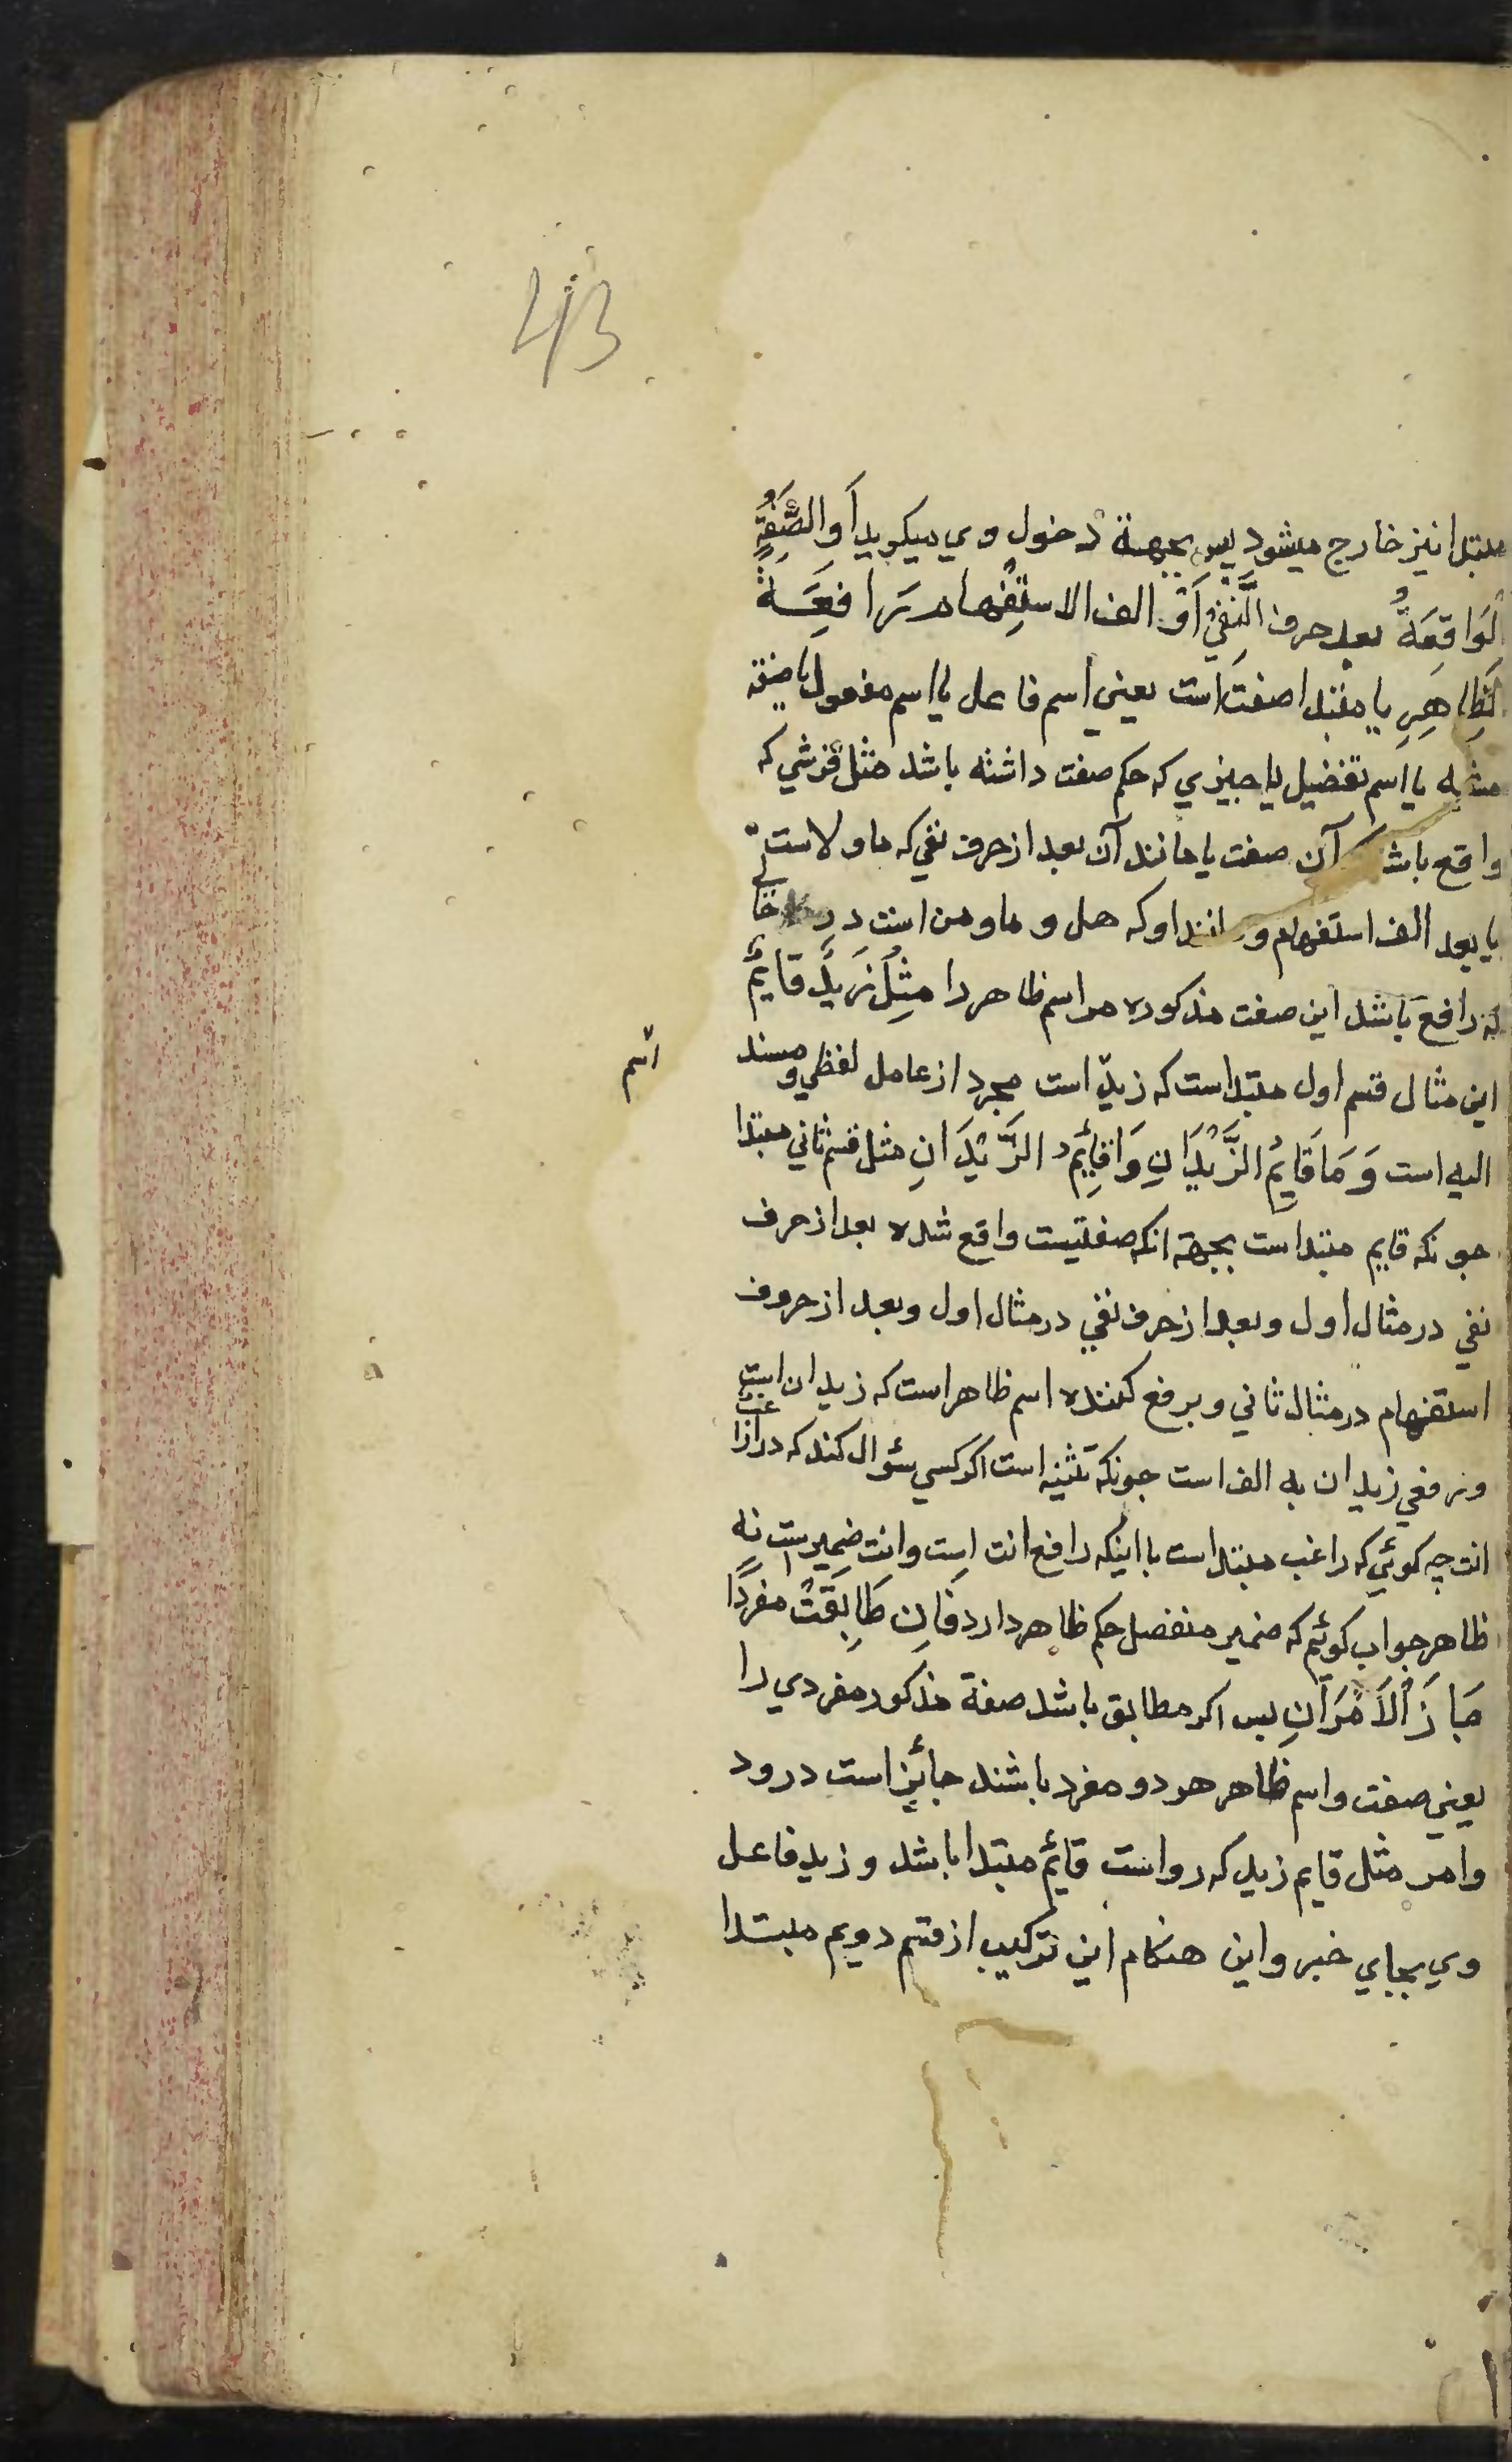 43
مبتدا نیز خارج میشود پس بجهة دخول وي میکوید اَوِ الصِّفَةُ
الوَاقِعَةُ بعد حرف النَّفْيِ اَوْ الف الاستِفْهام رَافِعَةً
لِظَاهِرٍ یا مبتدا صفت است یعني اسم فاعل یا اسم مفعول یا صفة
مشبه یا اسم تفضیل یا چیزي که حکم صفت داشته باشد مثل قرشي که
واقع باشد آن صفت یا مانند آن بعد از حرف نفي که ما و لاست
یا بعد الف استفهام و مانند او که هل و ما و من است در حالتي
که رافع باشد این صفت مذکوره مر اسم ظاهر را مِثْلُ زَیْدٌ قَایِمٌ
این مثال قسم اول مبتداست که زیدٌ است مجرد از عامل لفظي و مسند
الیه است وَ مَا قَایِمٌ الزَّیْدَانِ وَ اَقَایِمٌ الزَّیْدَانِ مثل قسم ثاني مبتدا
جونکه قایم مبتداست بجهة انکه صفتیست واقع شده بعد از حرف
نفي در مثال اول و بعد از حرف نفي در مثال اول و بعد از حروف
استفهام در مثال ثاني و برفع کننده اسم ظاهر است که زیدان است
و رفعي زیدان به الف است جونکه تثنیه است اکر کسي سؤال کند که در اراغب
انت چه کوئي که راغب مبتدا است با اینکه رافع انت است و انت ضمیر است نه
ظاهر جواب کوئیم که ضمیر منفصل حکم ظاهر دارد فَاِن طَابَقَتْ مفردًا
جَازَ اْلاَمْرَانِ پس اکر مطابق باشد صفة مذکور مفردي را
یعني صفت و اسم ظاهر هر دو مفرد باشند جائز است در ود
وامر مثل قایم زید که رواست قائم مبتدا باشد و زید فاعل
وي بجاي خبر و این هنکام این ترکیب از قسم دویم مبتدا